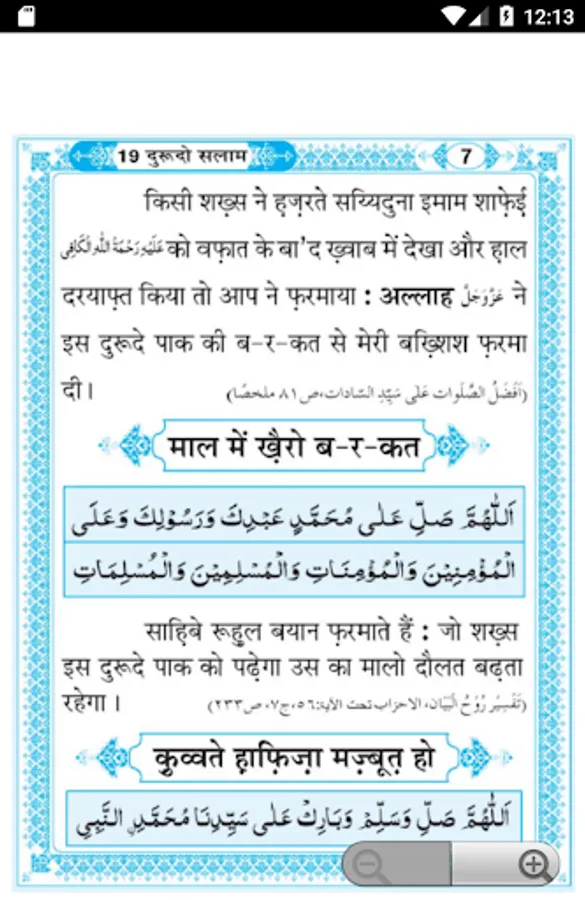 12:13
19 दुरूदो सलाम
7
किसी शख़्स ने ह़ज़रते सय्यिदुना इमाम शाफ़ेई
عَلَيْهِ رَحْمَةُ اللهِ الْكَافِى को वफ़ात के बा'द ख़्वाब में देखा और ह़ाल
दरयाफ़्त किया तो आप ने फ़रमाया : अल्लाह عَزَّوَجَلَّ ने
इस दुरूदे पाक की ब-र-कत से मेरी बख़्शिश फ़रमा
दी। (اَفْضَلُ الصَّلَوات عَلٰى سَيِّدِ السَّادات،ص٨١ ملخصًا)
माल में ख़ैरो ब-र-कत
اَللّٰهُمَّ صَلِّ عَلٰى مُحَمَّدٍ عَبْدِكَ وَرَسُوْلِكَ وَعَلَى
الْمُؤْمِنِيْنَ وَالْمُؤْمِنَاتِ وَالْمُسْلِمِيْنَ وَالْمُسْلِمَاتِ
साह़िबे रूह़ुल बयान फ़रमाते हैं : जो शख़्स
इस दुरूदे पाक को पढ़ेगा उस का मालो दौलत बढ़ता
रहेगा। (تَفْسِيْر رُوْحُ الْبَيَان، الاحزاب تحت الآية:٥٦،ج٧،ص٢٣٣)
क़ुव्वते ह़ाफ़िज़ा मज़्बूत़ हो
اَللّٰهُمَّ صَلِّ وَسَلِّمْ وَبَارِكْ عَلٰى سَيِّدِنَا مُحَمَّدِ ࣙالنَّبِيِّ